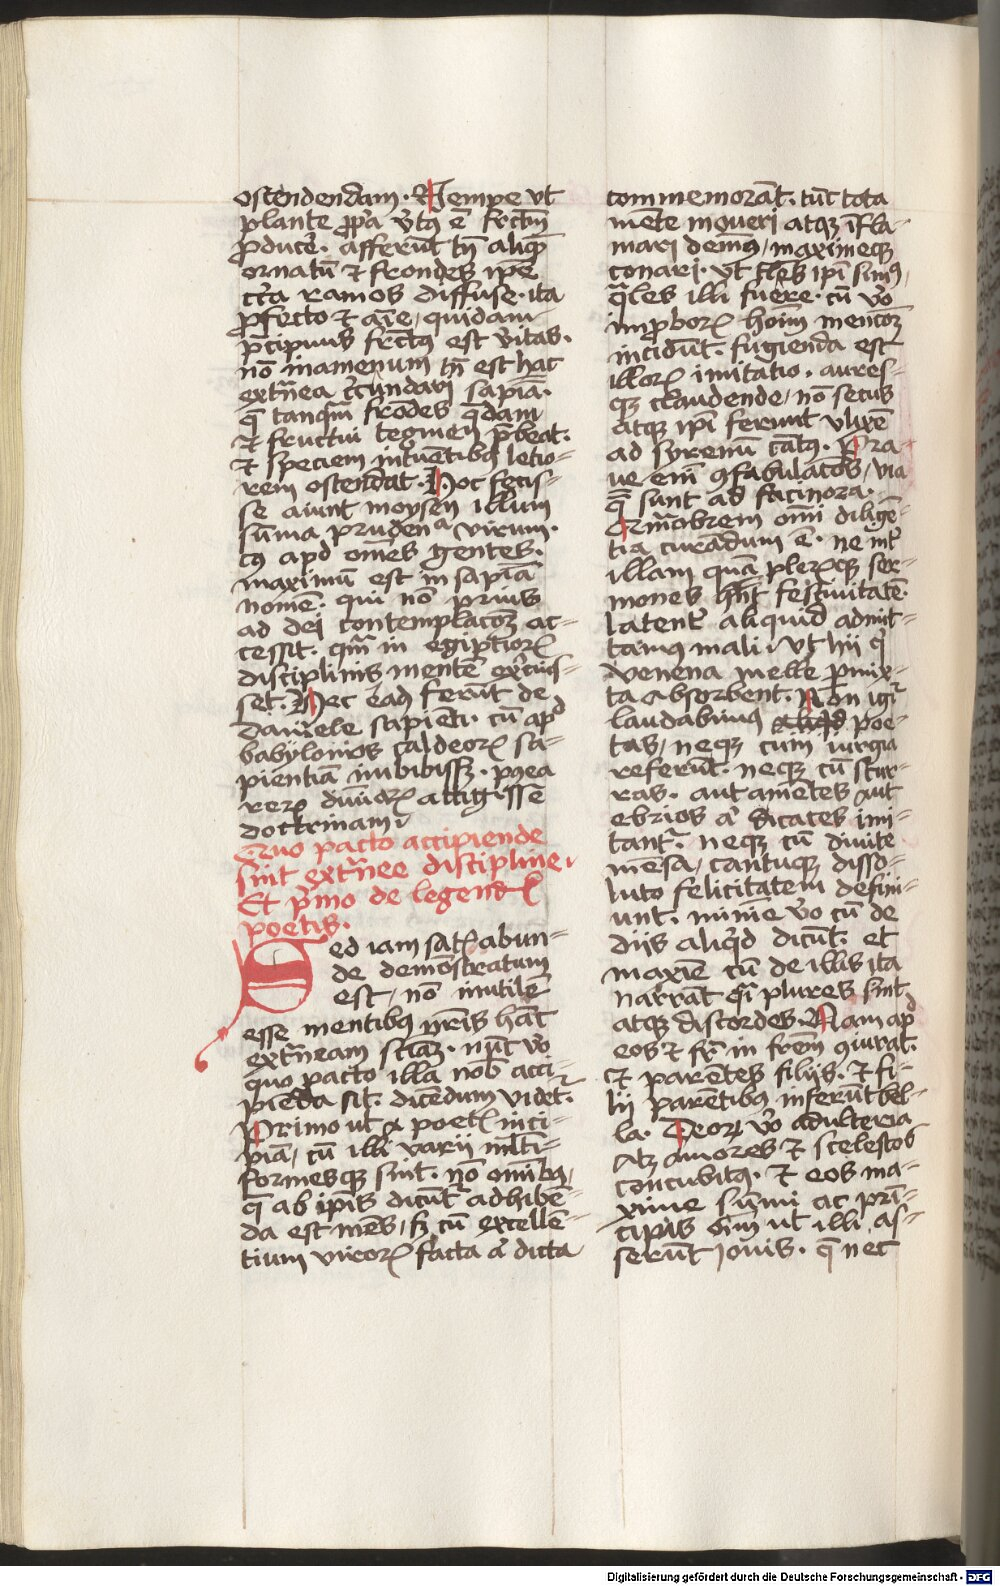 ostendendam. Nempe vt
plante ꝓp̄a v̄tꝰ ē fructū
ꝓducē. afferūt tn̄ aliqm̄
ornatū ⁊ frondes ip̄e
cc̄a ramos diffuse. ita
ꝓfecto ⁊ aīe, quidam
p̄cipuus fructꝰ est v̄itas.
nō inamenum tn̄ est hac
ext̄nea c̄cundari sapīa.
q̄ tanqm̄ frōdes q̄dam
⁊ fructui tegmen p̄beat.
⁊ speciem intuētibꝰ letio-
rem ostendat. Hoc fecis-
se aiunt moysen illum
sūma prudenᵃ virum.
cꝰ apd omēs gentes.
maximū est in sapīa
nomē. qui nō prius
ad dei contemplacōꝫ ac-
cessit. qm̄ in egiptioꝝ
disciplinis mentē exc̄uis-
set. Nec eadē ferūt de
daniele sapiēti. cū apd
babylonios caldeoꝝ sa-
pientiā imbibissꝫ. pꝰea
reꝝ diuīoꝝ attigisse
doctrinam.
Quo pacto accipiende
sint ext̄nee discipline.
Et p̄mo de legendꝭ
poetis.
Sed iam satꝭ abun-
de demōstratum
est, nō inutilē
esse mentibꝰ nr̄is hāc
ext̄neam sciāꝫ. nūc v̄o
quo pacto illa nob̄ acci-
pieda sit. dicedum videt᷑.
Primo ut a poetꝭ inci-
piā, cū illi varii ml̄ti-
formesqꝫ sint. nō omībꝰ,
q̄ ab ip̄is dicūt᷑ adhibē-
da est mēs, sꝫ cū excellē-
tium viroꝝ facta aꝉ dicta
commemorāt. tūc tota
mēte moueri atqꝫ īfla-
mari demꝰ, maximeqꝫ
conari. vt tl̄es ip̄i simꝰ,
q̄les illi fuēre. cū v̄o
imꝓboꝝ hoīm mencōꝫ
incidūt. fugienda est
illoꝝ imitatio. aures-
qꝫ claudende, nō secus
atqꝫ ip̄i ferunt vlixē
ad syrenū cātꝰ. Pra-
ue enī ꝯfabulacōēs, via
q̄ sunt ad facinora.
Qm̄obrem omī diligē-
tia curādum ē. ne int̄
illam quā pleꝝqꝫ ser-
mones hn̄t festiuitatē.
latent᷑ aliquid admit-
tamꝰ mali. Vt hii qͥ
venena melle ꝑmix-
ta absorbent. Non igr̄
laudabimꝰ poe-
tas, neqꝫ cum iurgia
referūt. neqꝫ cū scur-
ras. aut amētes aut
ebrios aꝉ dicaces imi-
tant᷑. neqꝫ cū diuite
mēsa, cantuqꝫ disso-
luto felicitatem defini-
unt. minīe v̄o cū de
diis aliqͥd dicūt. et
maxīe cū de illis ita
narrāt qͣi plures sint
atqꝫ discordes. Nam apd
eos ⁊ fr̄ in frēm ꝯiurat.
⁊ parētes filiis. ⁊ fi-
lii parētibꝰ inferūt bel-
la. Deoꝝ v̄o adulteria
atꝫ amores ⁊ scelestos
concubitꝰ. ⁊ eos ma-
xime sūmi ac prī-
cipis oīm ut illi as-
serūt iouis. q̄ nec
Digitalisierung gefördert durch die Deutsche Forschungsgemeinschaft - DFG